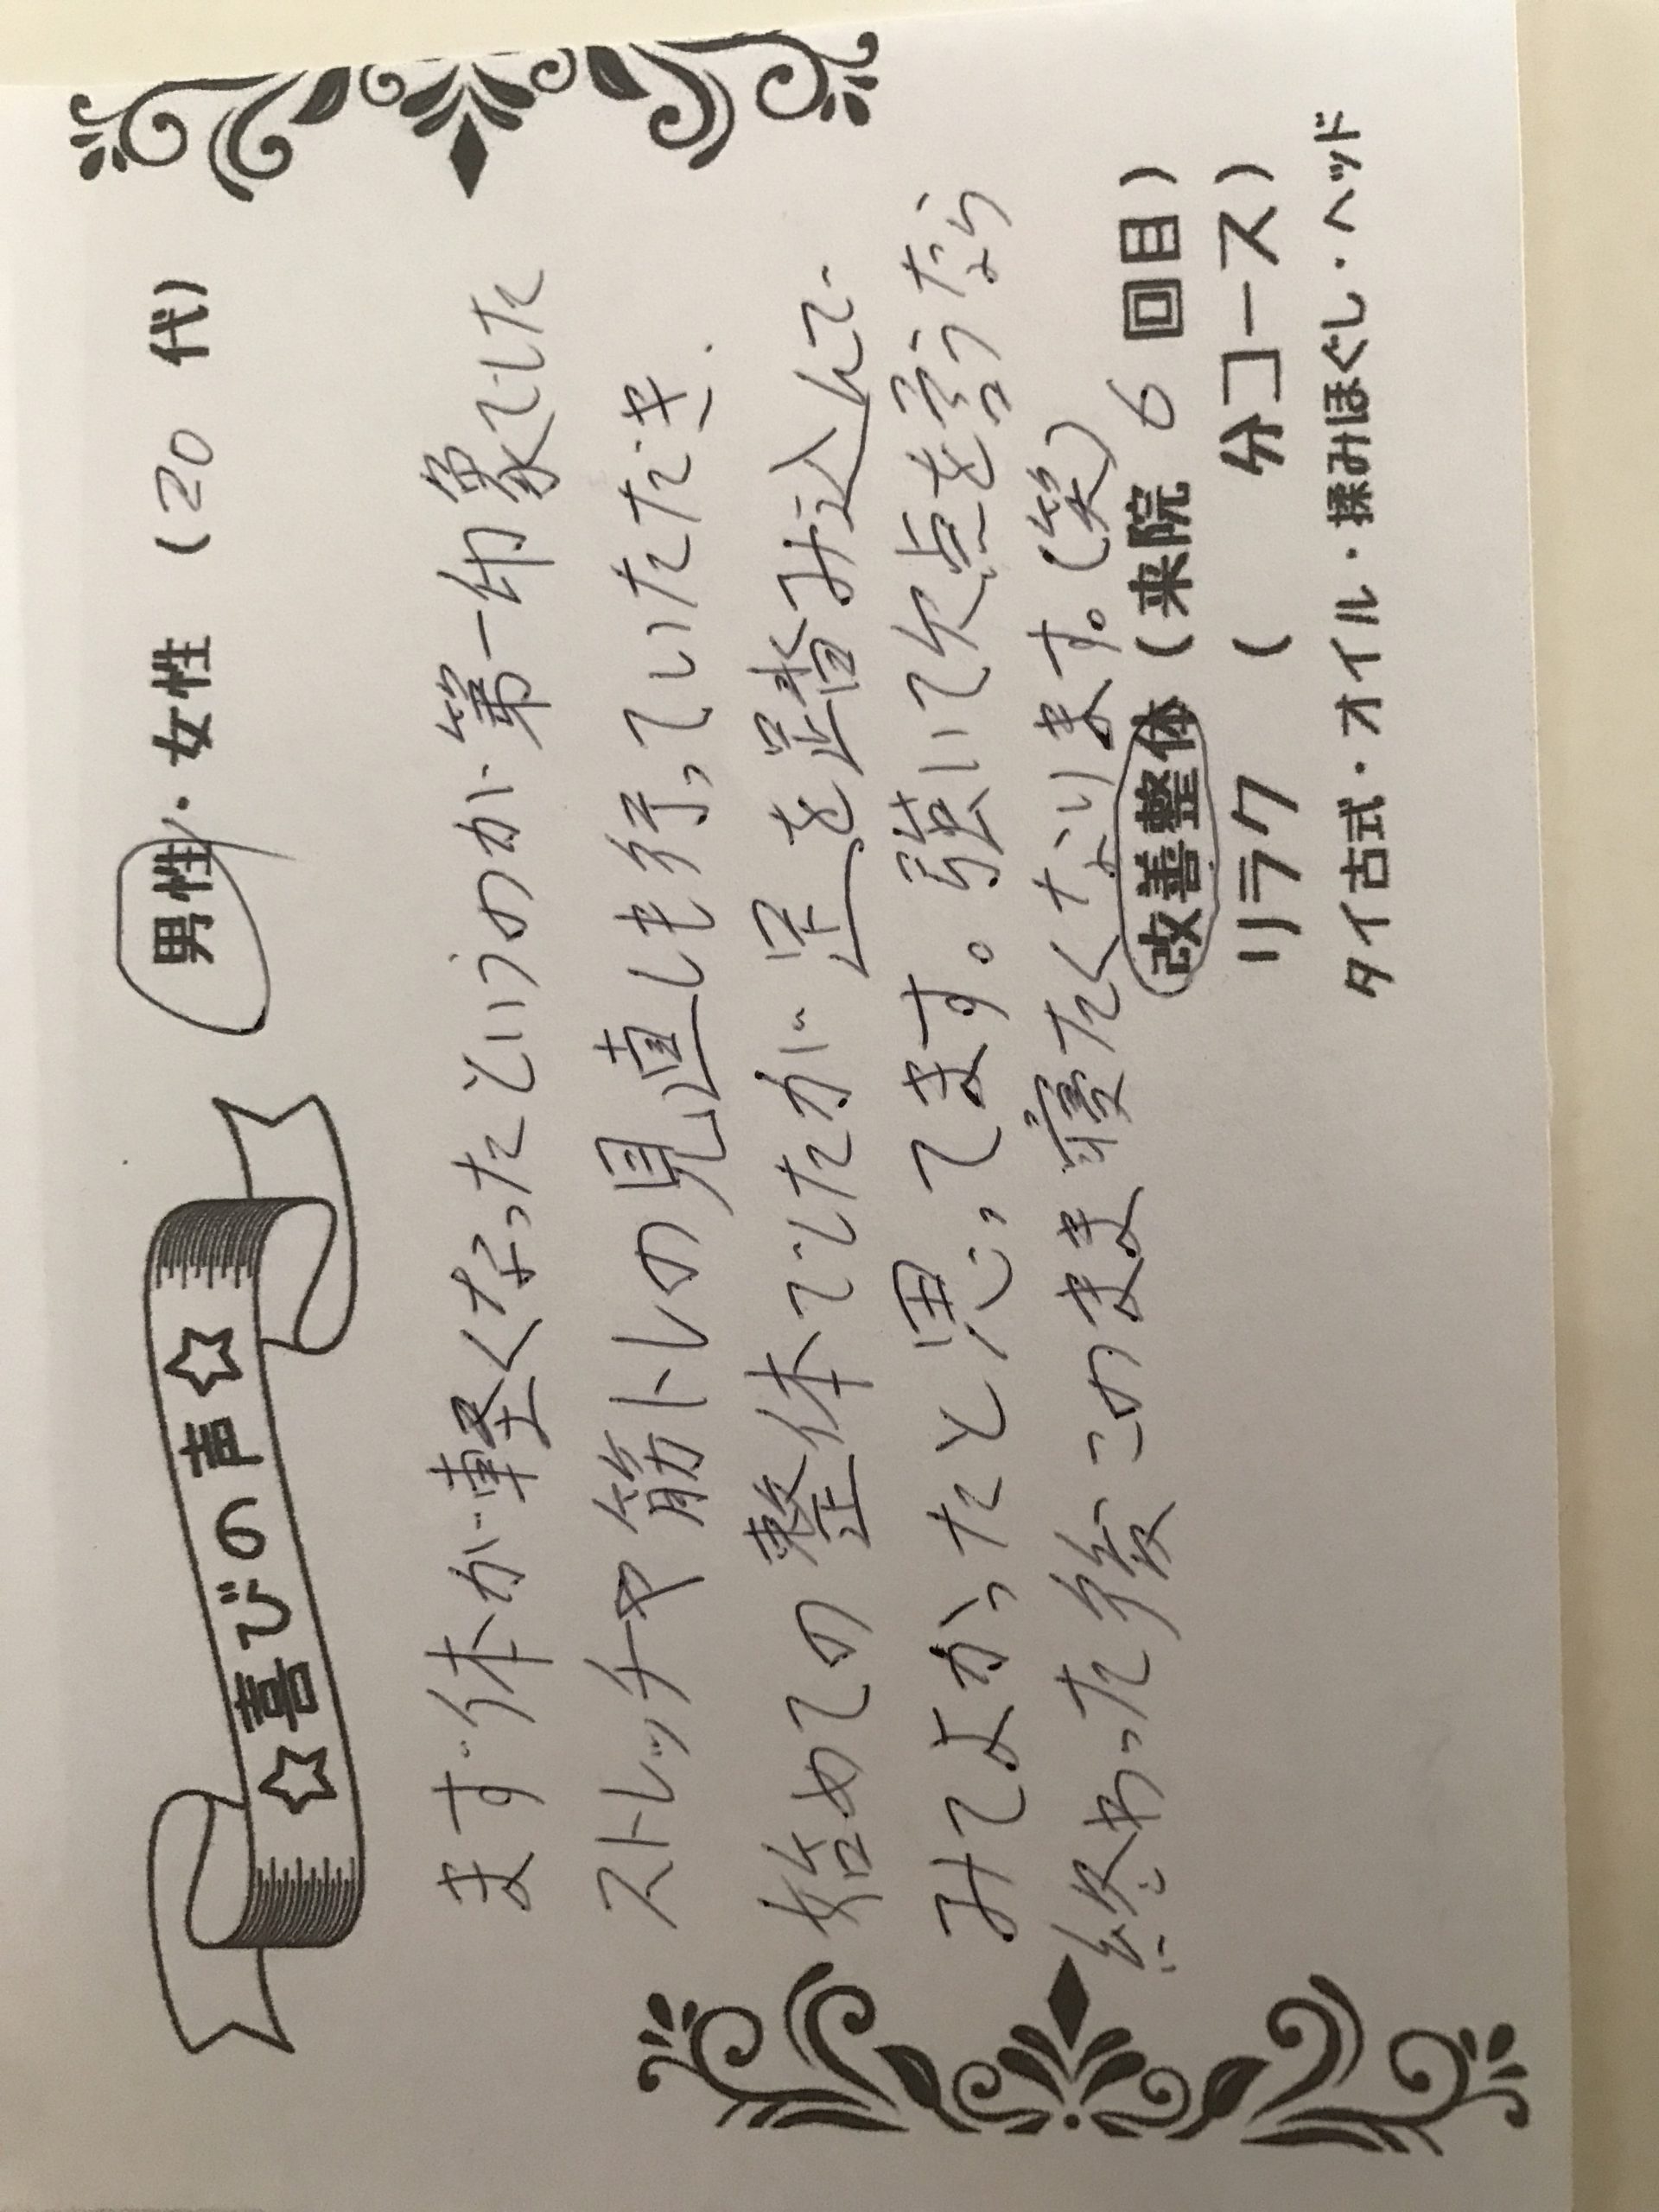 ☆喜びの声☆
男性・女性 (20 代)
まず体が軽くなったというのが第一印象でした
ストレッチや筋トレの見直しも行っていただき、
始めての整体でしたが足を踏み込んで
みてよかったと思ってます。強いて欠点を言うなら
終わった後このまま寝たくなります。(笑)
改善整体 (来院 6 回目)
リラク ( 分コース)
タイ古式・オイル・揉みほぐし・ヘッド